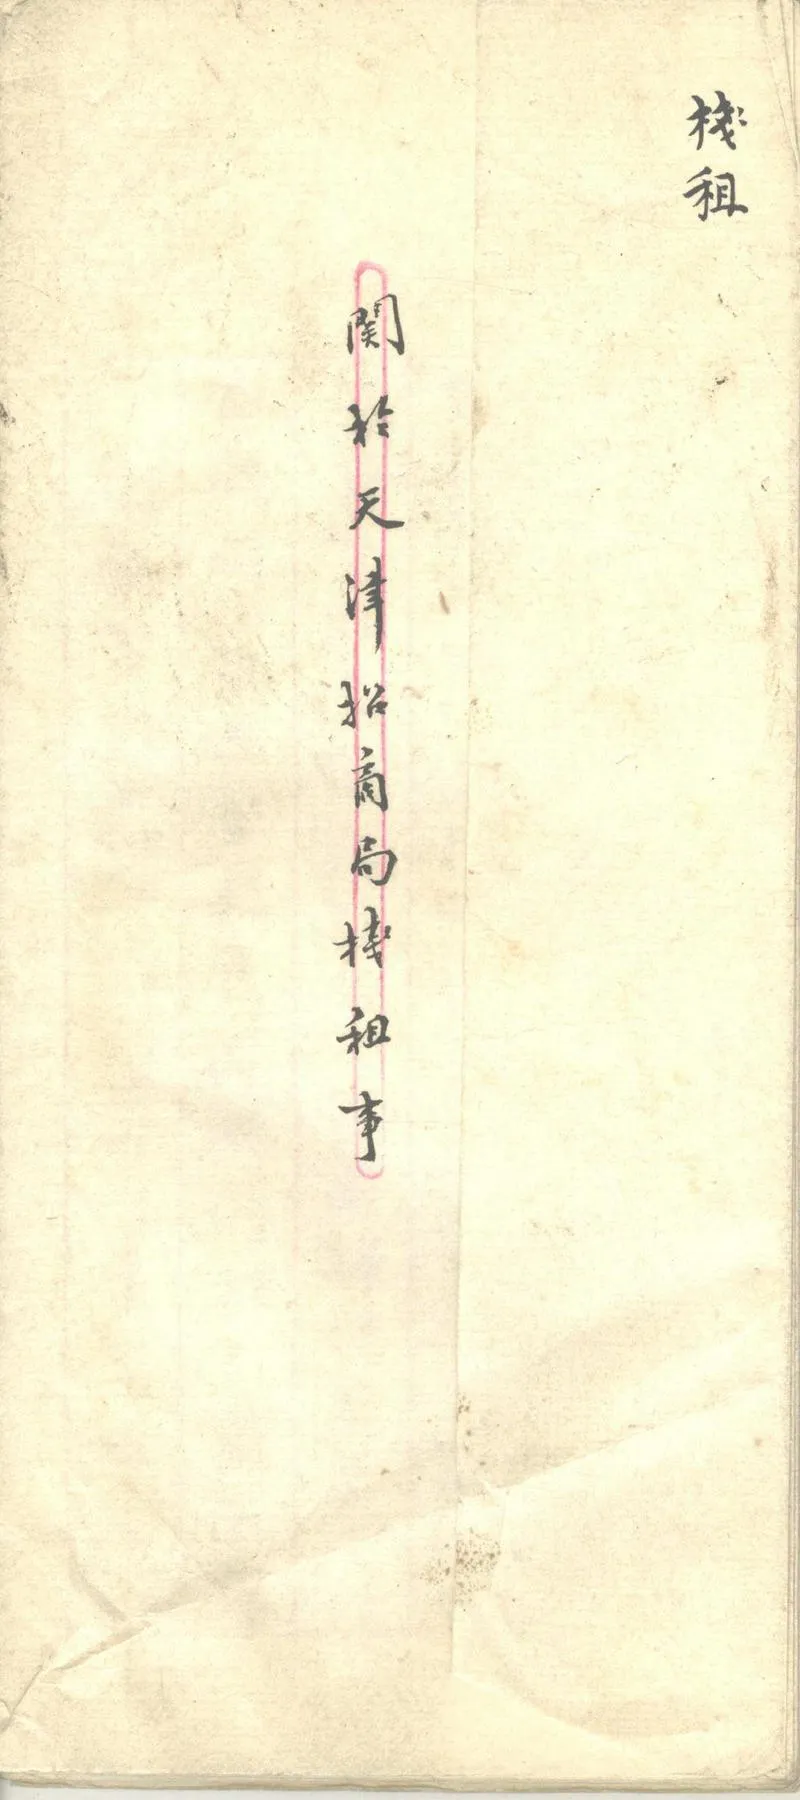 棧租
関於天津招商局棧租事